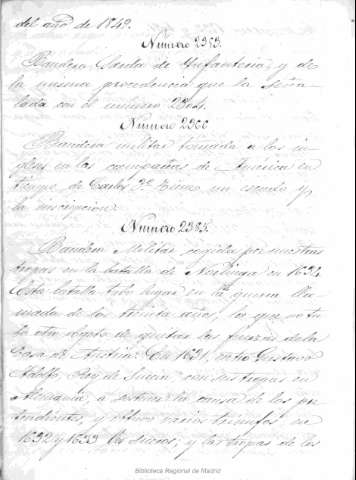 del año de 1842.
Numero 2303.
Bandera Santa de Infanteria, y de
la misma procedencia que la seña-
lada con el numero 2304.
Numero 2300
Bandera militar tomada a los in-
gleses en las campañas de America en
tiempo de Carlos 3º. Tiene un escudo y
la inscripcion.
Numero 2385.
Bandera Militar, cogida por nuestras
tropas en la batalla de Norlinga en 1634
Esta batalla tubo lugar en la guerra lla-
mada de los treinta años, la que no tu-
bo otro objeto de quitar las fuerzas de la
Casa de Austria. En 1631, entro Gustavo
Adolfo, Rey de Suecia con sus tropas en
Alemania, a sostener la causa de los pro-
testantes, y obtuvo varios triunfos en
1632 y 1633 los suecos, y las tropas de los
Biblioteca Regional de Madrid